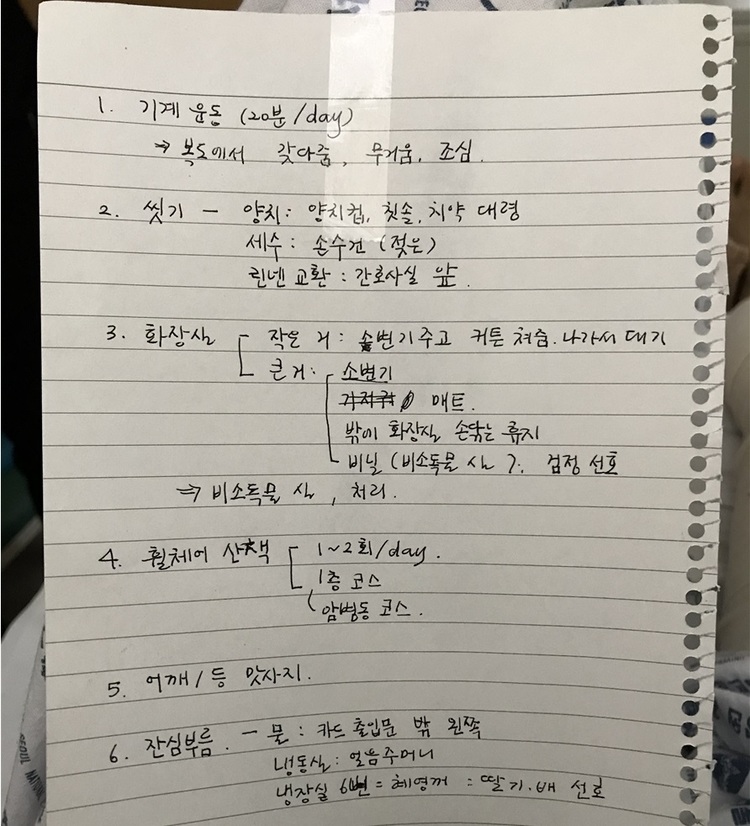 1. 기계 운동 (20분/day)
→ 복도에서 갖다줌, 무거움. 조심.
2. 씻기 - 양치: 양치컵, 칫솔, 치약 대령
세수: 손수건 (젖은)
린넨 교환: 간호사실 앞.
3. 화장실 - 작은 거: 소변기주고 커튼 쳐줌. 나가서 대기
큰거: 소변기
매트.
밖에 화장실 손닦는 휴지
비닐 (비소독물 실): 검정 선호
⇒ 비소독물 실, 처리.
4. 휠체어 산책 1~2회/day.
1층 코스
암병동 코스.
5. 어깨/등 맛사지.
6. 잔심부름. - 물: 카드 출입문 밖 왼쪽
냉동실: 얼음주머니
냉장실 6번 = 혜영꺼 = 딸기. 배 선호
SEOUL NATION